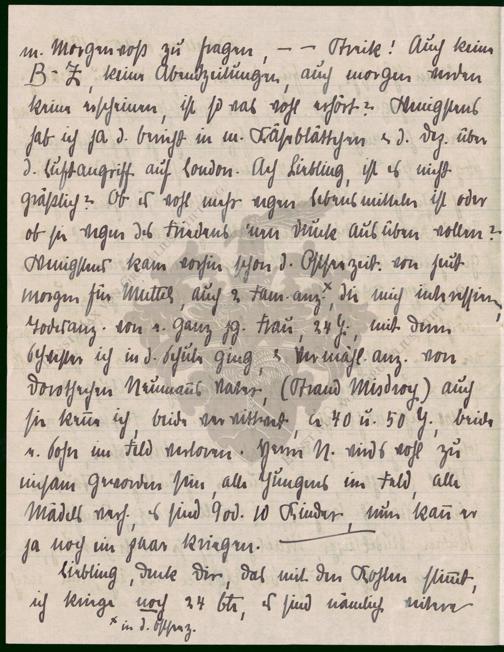 m. Morgenroß zu fragen, – – Streik! Auch keine
B-Z, keine Abendzeitungen, auch morgen werden
keine erscheinen, ist so was wohl erhört? Wenigstens
hab ich ja d. bericht in m. Käseblättchen d. dez. über
d. Luftangriff auf London. Ach Liebling, ist es nicht
gräßlich? Ob es wohl mehr wegen Lebensmitteln ist oder
ob sie wegen des Friedens 'nen Druck ausüben wollen?
Wenigstens kam vorhin schon d. Ostseezeit. von heut
morgen für Muttel, auch 2 Fam. anz.ˣ, die mich interessieren,
Todesanz. von e. ganz jg. Frau, 24 J., mit deren
Schwester ich in d. Schule ging, & Vermähl. anz. von
Dorotheechen Neumanns Vater, (Strand Misdroy) auch
sie kenne ich, beide verwittwet & 40 u. 50 J., beide
e. Sohn im Feld verloren. Herrn N. wirds wohl zu
einsam geworden sein, alle Jungens im Feld, alle
Mädels verh., es sind 9 od. 10 Kinder, nun kann er
ja noch ein paar kriegen.
Liebling, denk dir, das mit den Kohlen stimmt,
ich kriege noch 24 Ctr., es sind nämlich
ˣ in d. Ostseez.